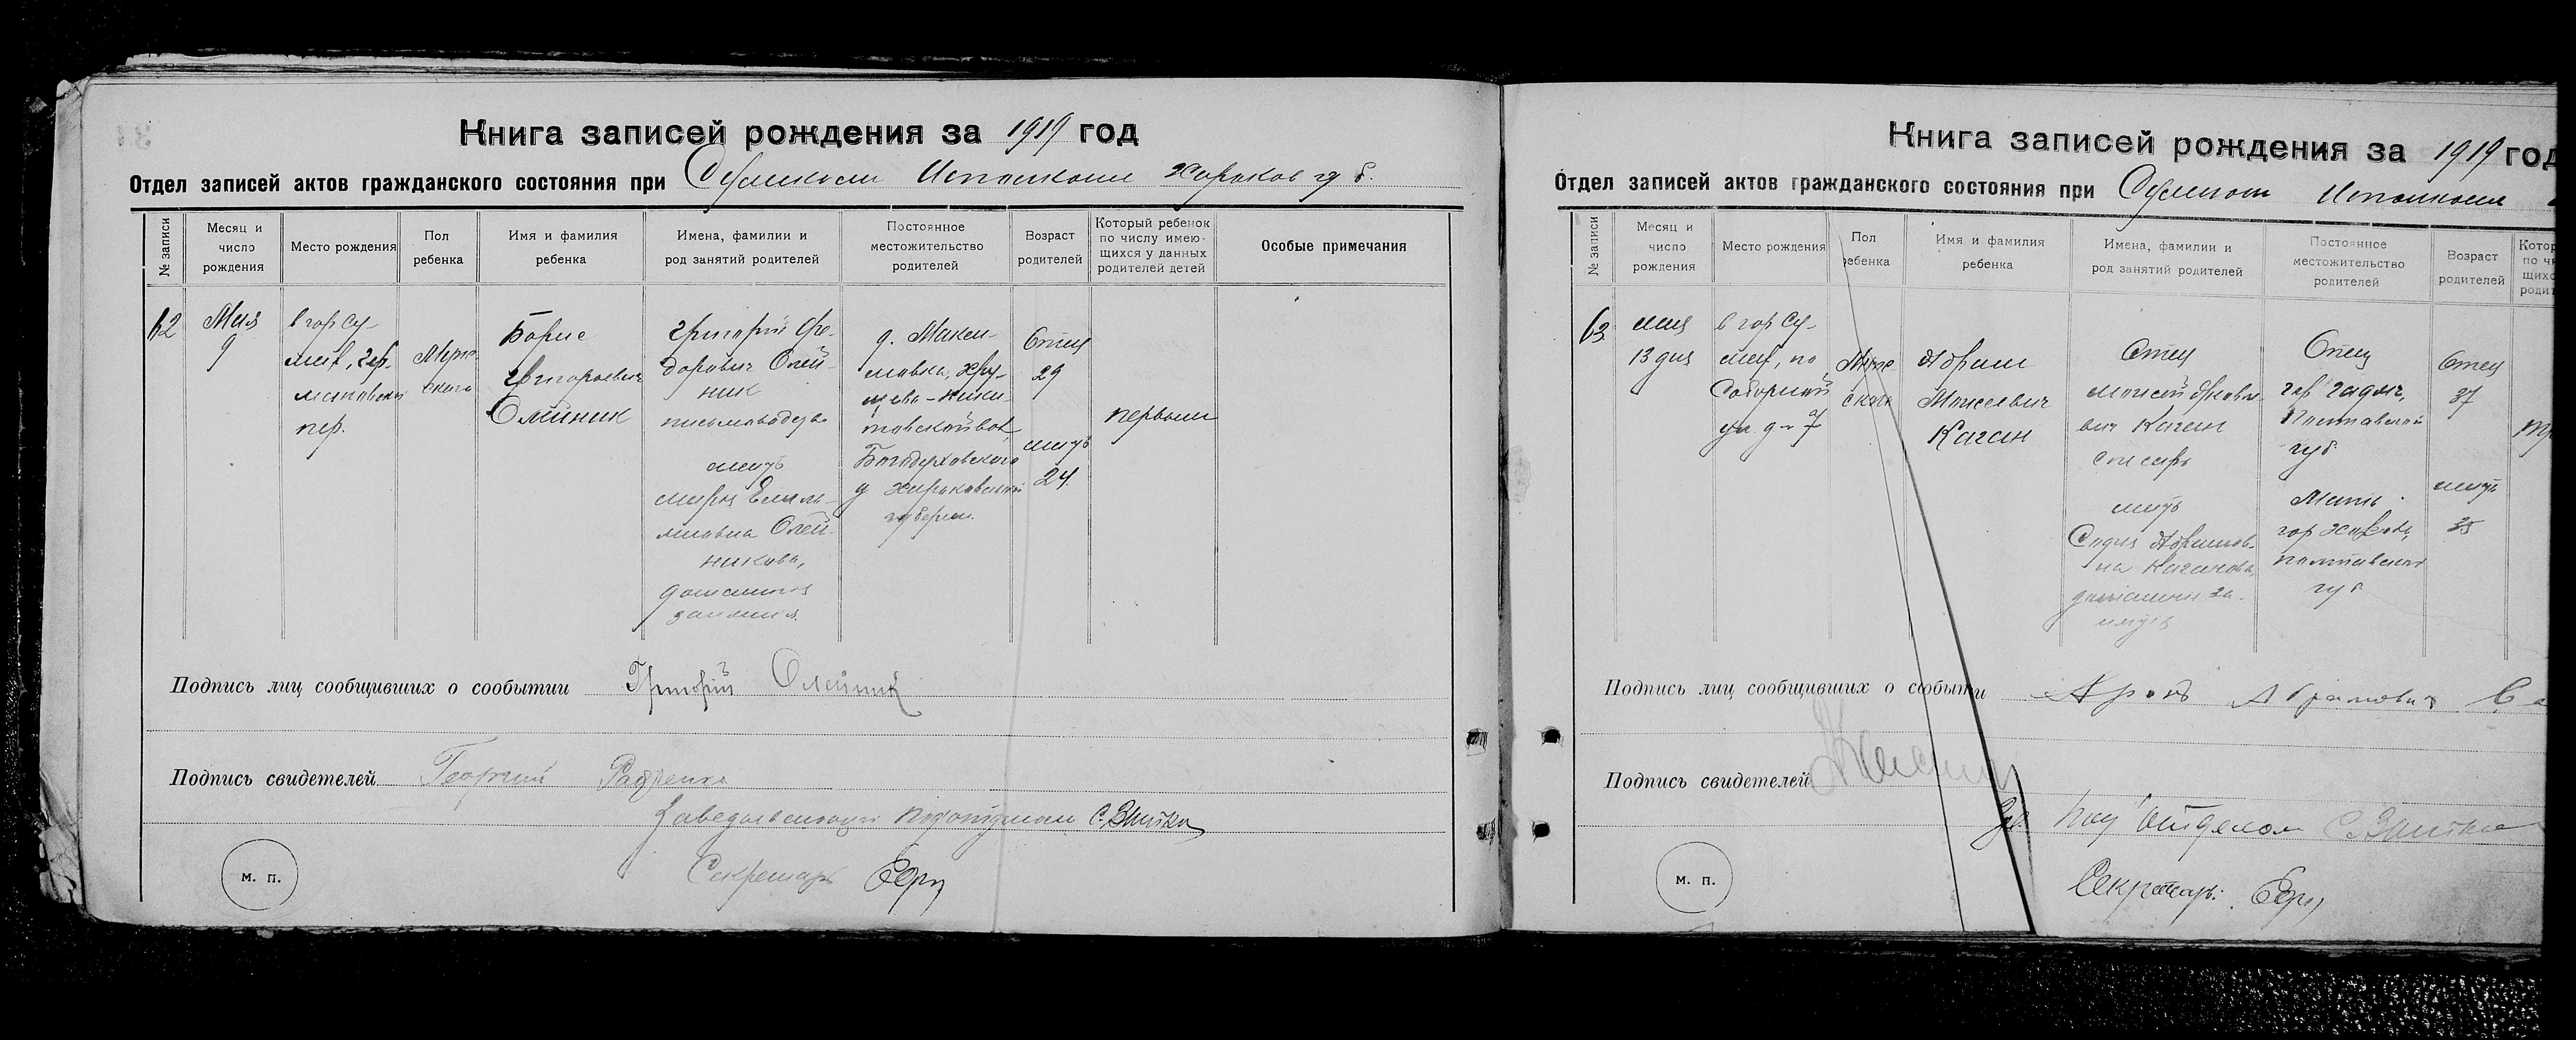 Книга записей рождения за 1919 год
Отдел записей актов гражданского состояния при Сумском Исполкоме Харьков губ.
№ записи
Месяц и число рождения
Место рождения
Пол ребенка
Имя и фамилия ребенка
Имена, фамилии и род занятий родителей
Постоянное местожительство родителей
Возраст родителей
Который ребенок по числу имеющихся у данных родителей детей
Особые примечания
62
Мая
9
в гор Су-
мах,
пер.
Муж-
ского
Борис
Григорьевич
Олейник
Григорий Фе-
дорович Олей-
ник
письмоводст
мать
Мария Емель-
яновна Олей-
никова,
домашния
занятия
д. Макси-
мовка, Хру-
щево-Ники-
товской вол
Богодуховского
у Харьковской
губернии.
Отец
29
мать
24
первым
Подпись лиц сообщивших о сообытии Григорій Олейник
Подпись свидетелей Георгий
Заведывающий подотделом
Секретарь
м. п.
Книга записей рождения за 1919 год
Отдел записей актов гражданского состояния при Сумском Исполкоме
№ записи
Месяц и число рождения
Место рождения
Пол ребенка
Имя и фамилия ребенка
Имена, фамилии и род занятий родителей
Постоянное местожительство родителей
Возраст родителей
63
мая
13 дня
в гор Су-
мах, по
Соборной
ул д № 7
Муж-
ского
Абрам
Моисеевич
Каган
Отец
Моисей Яковле-
вич Каган
слесарь
мать
Абрамов-
на Каганова,
домашния за-
нятия
Отец
гор Гадяч,
Полтавской
губ
Мать
гор
полтавской
губ
Отец
37
мать
35
Подпись лиц сообщивших о событии Аронъ Абрамовичъ
Подпись свидетелей
Зав. Под'отделом
Секретарь:
м. п.